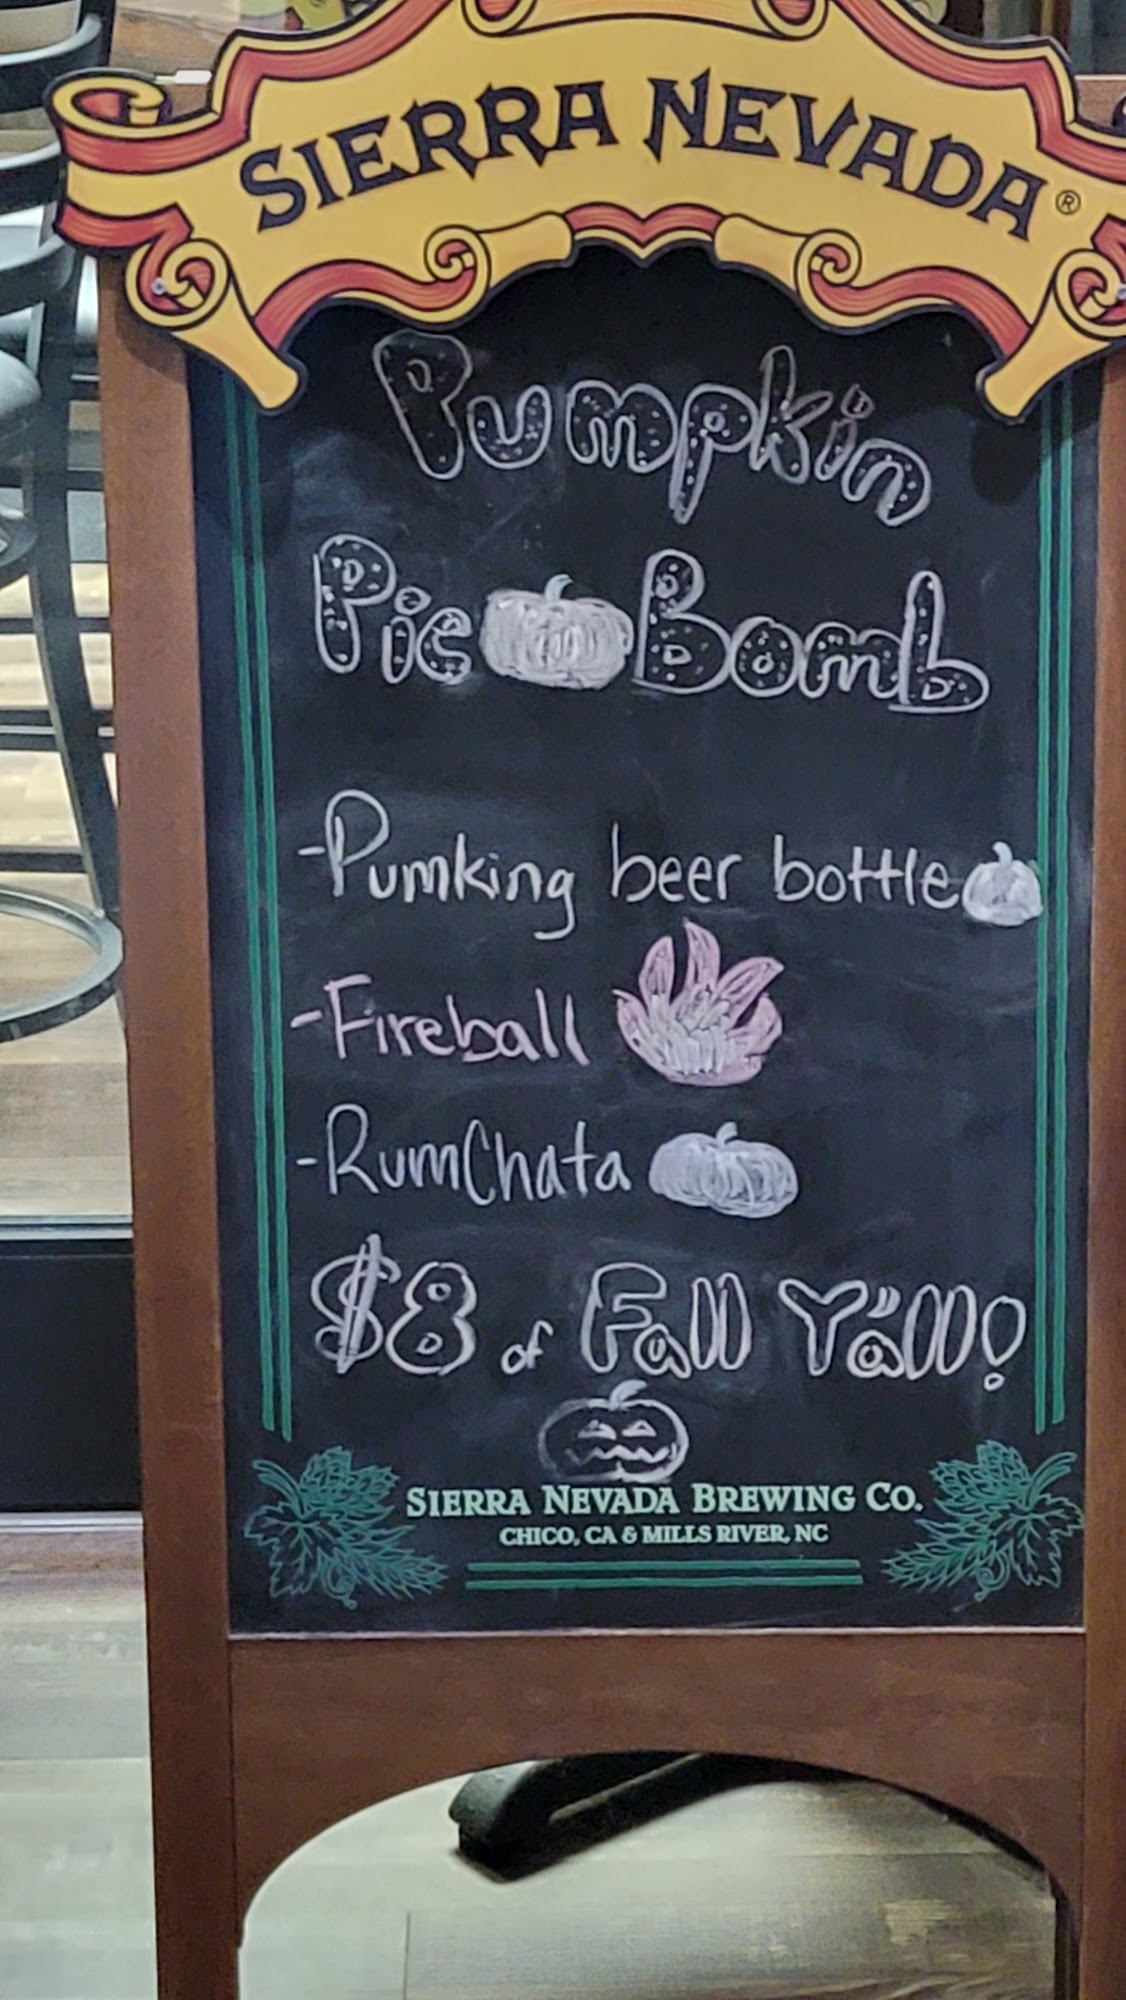 SIERRA NEVADA®
Pumpkin
Pie Bomb
-Pumking beer bottle
-Fireball
-RumChata
$8 of Fall Ya'll!
SIERRA NEVADA BREWING CO.
CHICO, CA & MILLS RIVER, NC